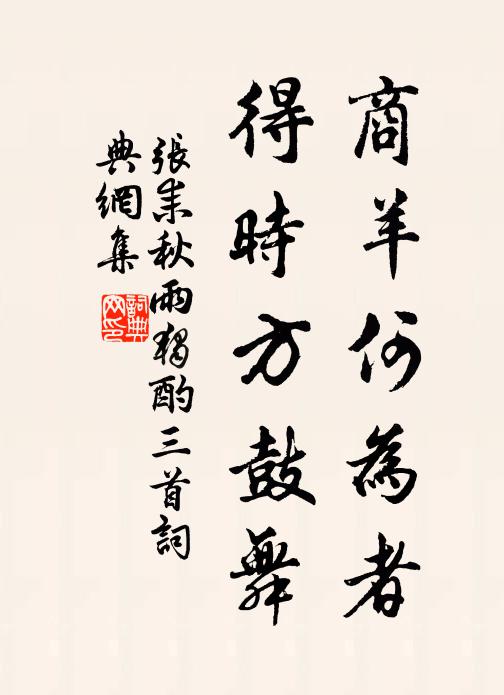 商羊何為者
得時方鼓舞
張耒秋雨獨酌三首詞
典網集
詞典網印